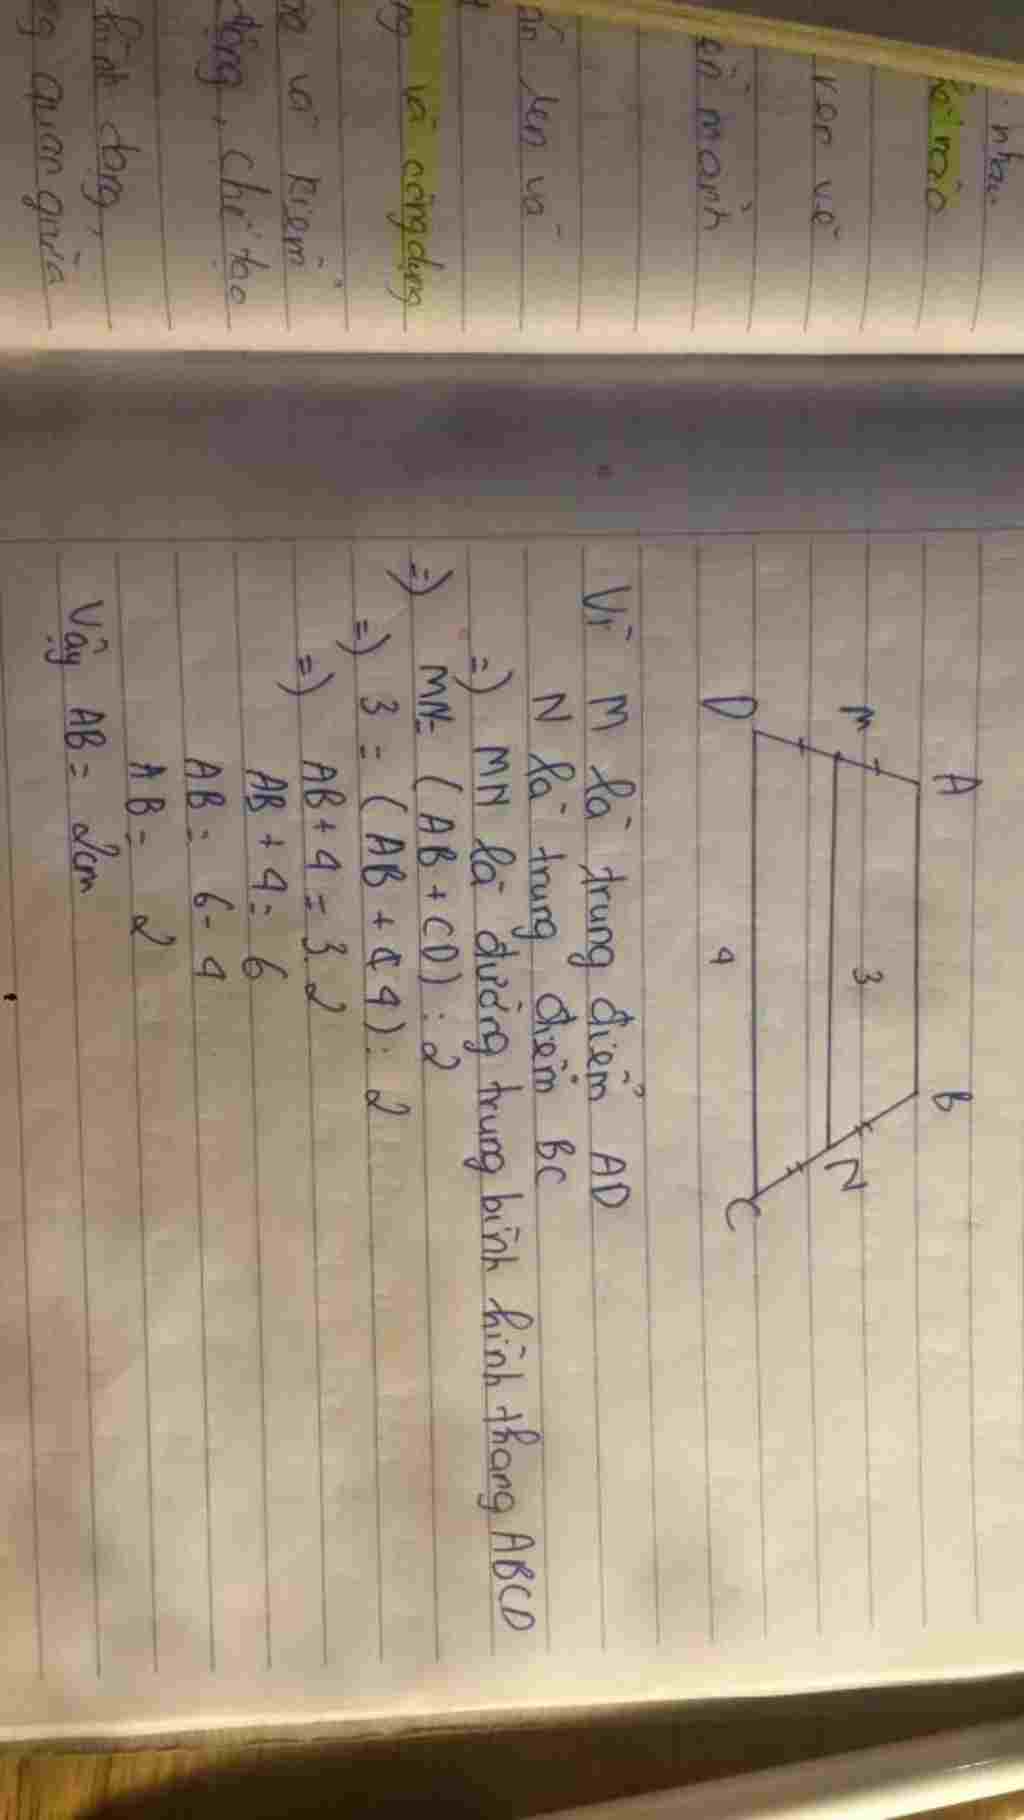 nhau
rào
ren vẽ
mảnh
ren và
và công dụng
và kiểm
động, chế tạo
hình dạng,
quan giữa
A
B
M
3
N
D
4
C
Vì M là trung điểm AD
N là trung điểm BC
=) MN là đường trung bình hình thang ABCD
=) MN= (AB+CD):2
=) 3 = (AB + 4):2
=) AB+4 = 3.2
AB + 4= 6
AB= 6-4
AB= 2
Vậy AB= 2cm